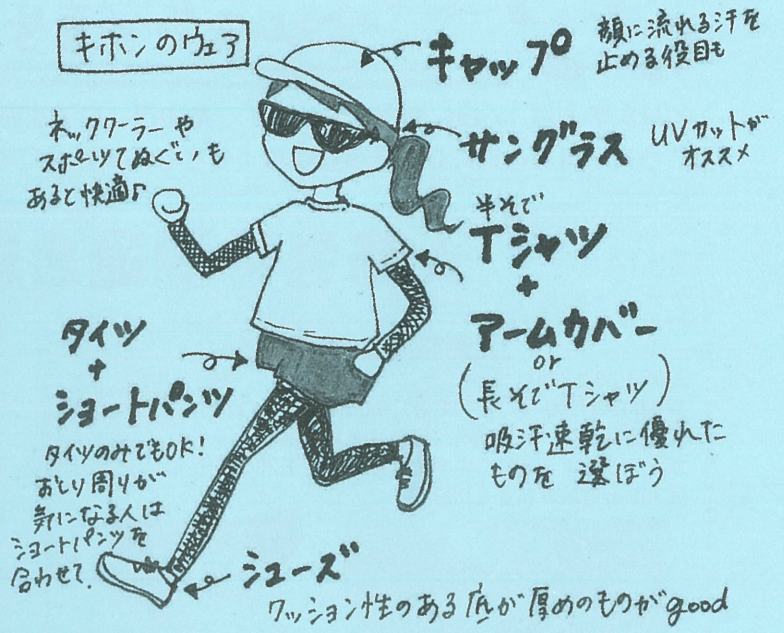 キホンのウェア
キャップ
顔に流れる汗を
止める役目も
サングラス
UVカットが
オススメ
ネッククーラーや
スポーツてぬぐいも
あると快適♪
半そで
Tシャツ
+
アームカバー
or
(長そでTシャツ)
吸汗速乾に優れた
ものを 選ぼう
タイツ
+
ショートパンツ
タイツのみでもOK!
おしり周りが
気になる人は
ショートパンツを
合わせて.
シューズ
クッション性のある底が厚めのものがgood